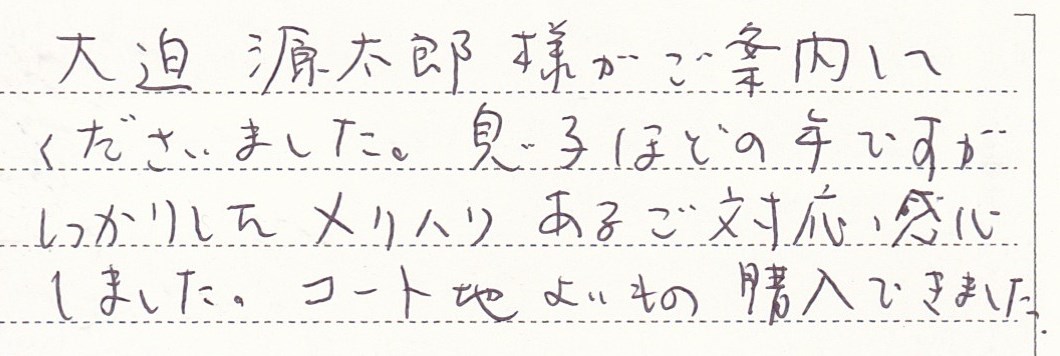 大迫 源太郎 様がご案内して
くださいました。息子ほどの年ですが
しっかりした メリハリ あるご対応、感心
しました。コート地 よいもの 購入できました.